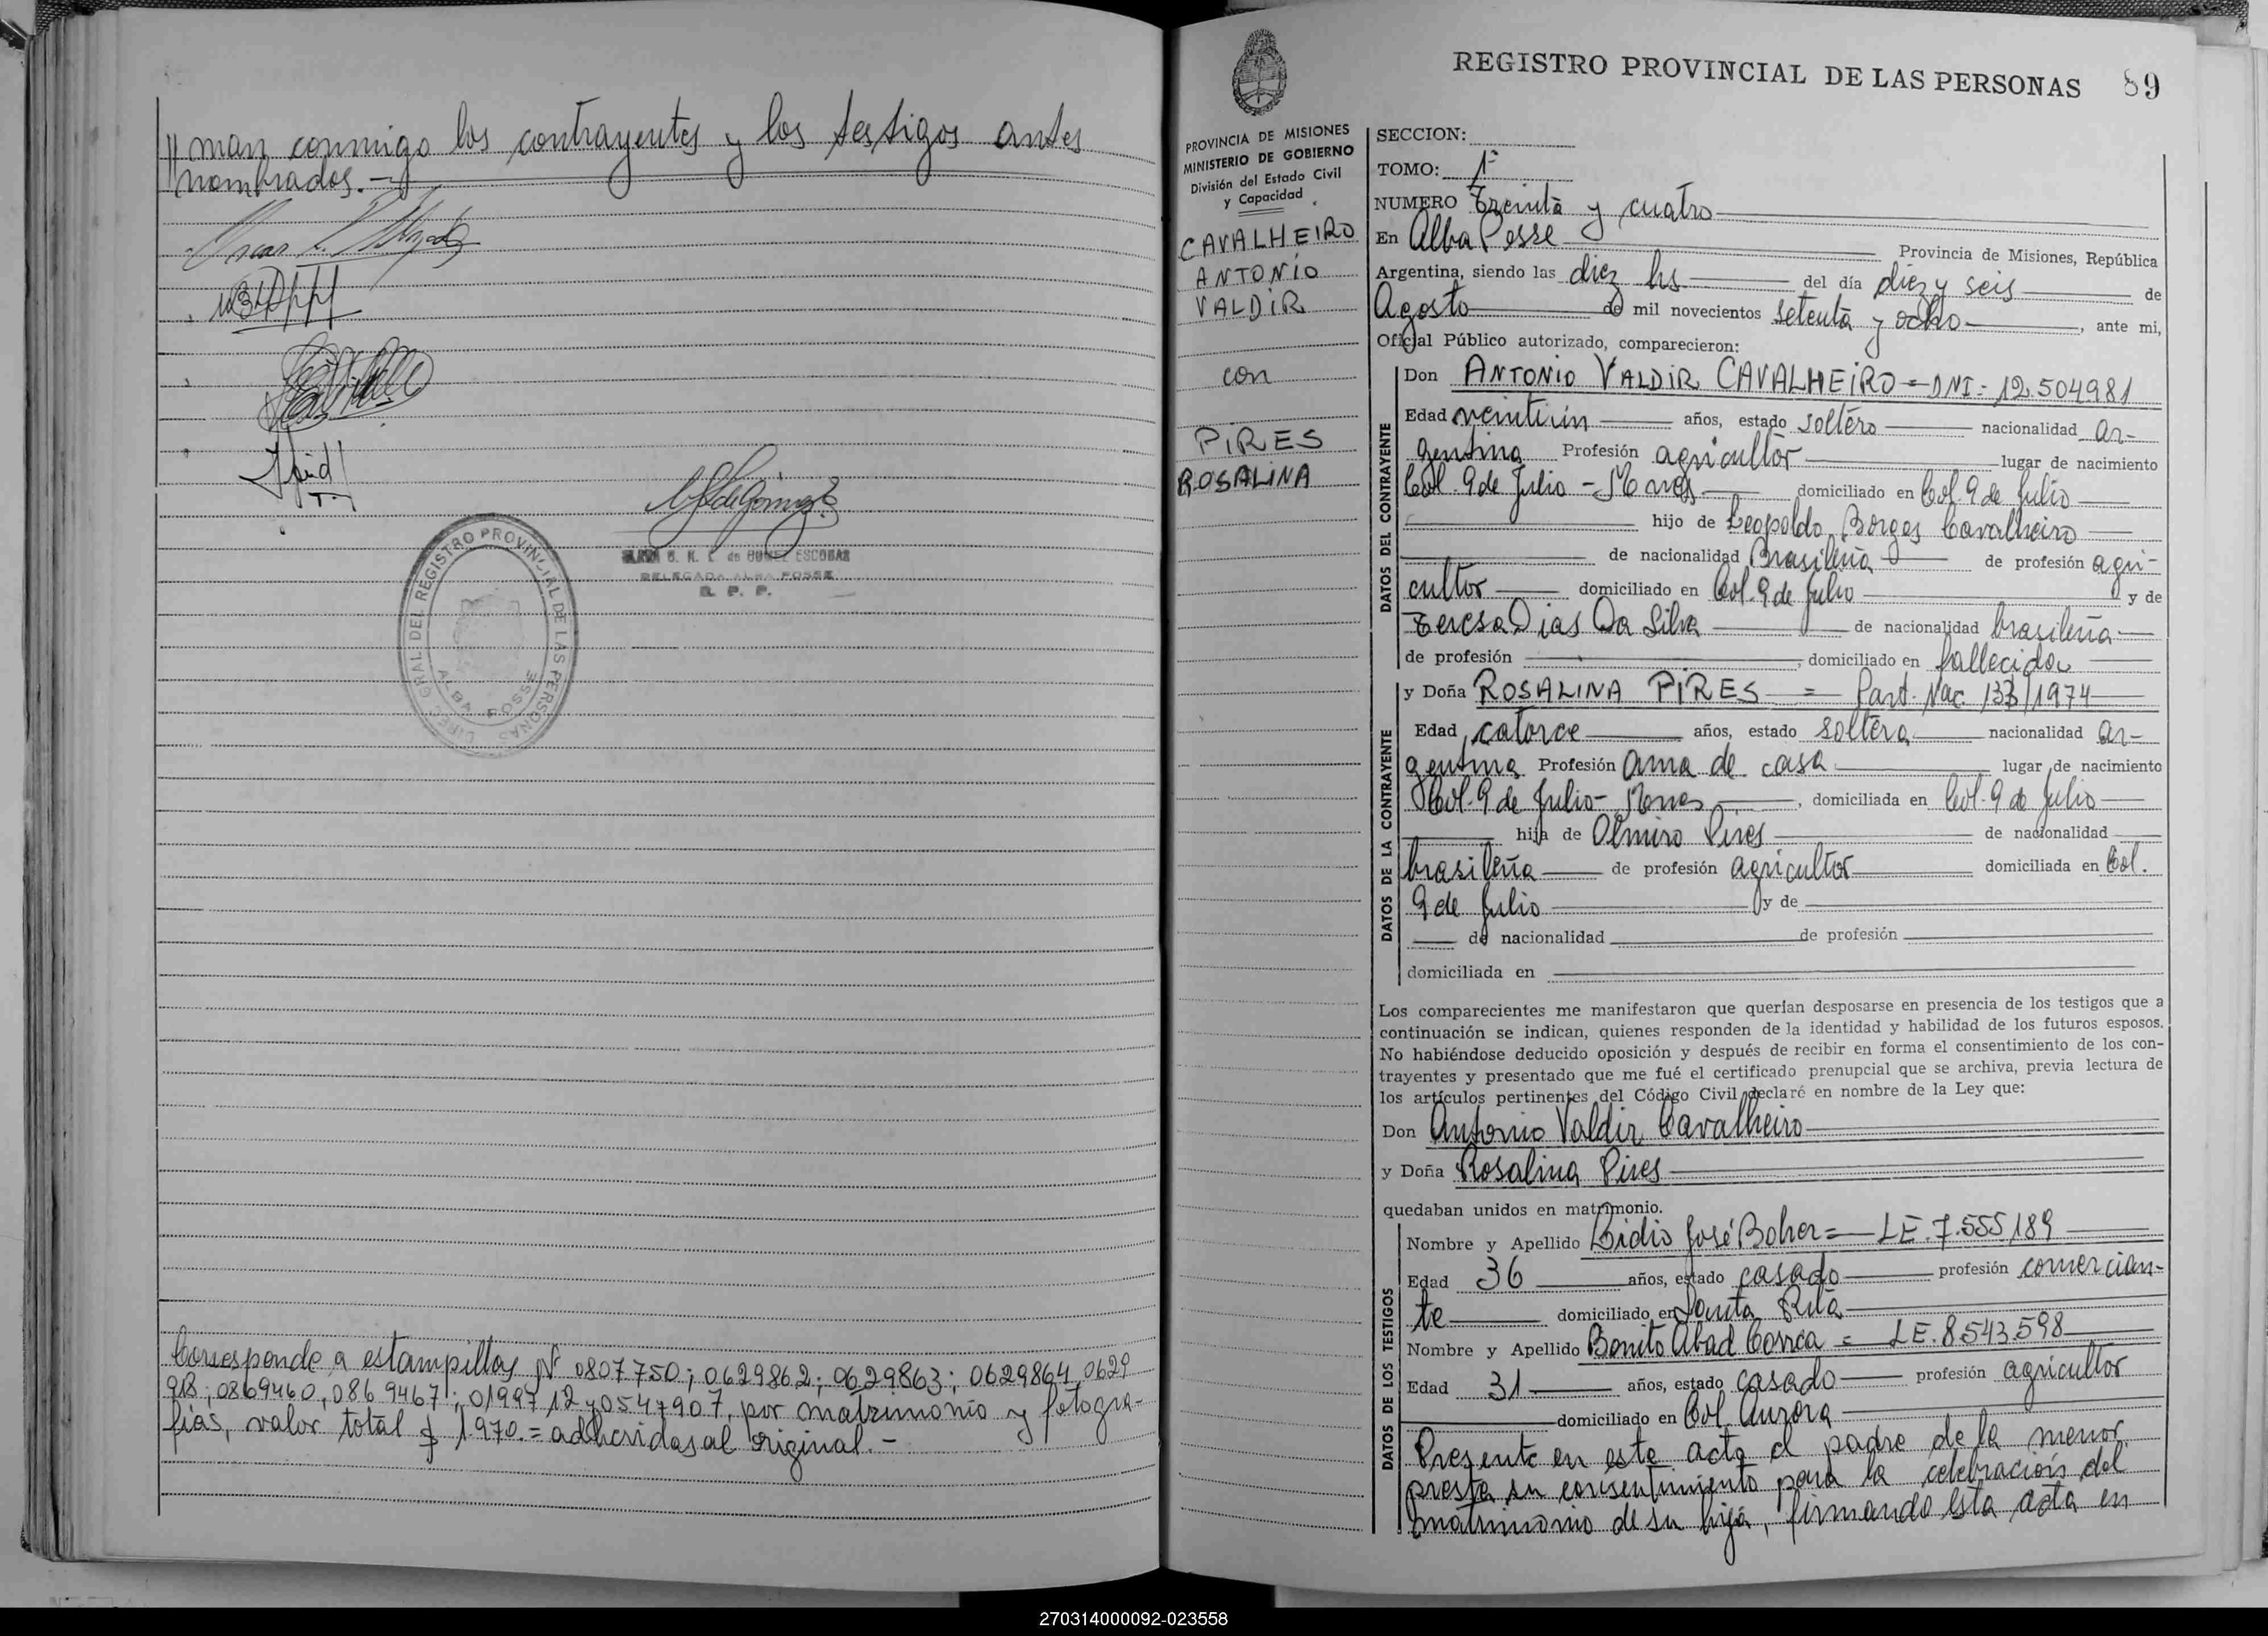 // man conmigo los contrayentes y los testigos antes
nombrados.-
DELEGADA ALBA POSSE
R. P. P.
DIREC. GRAL DEL REGISTRO PROVINCIAL DE LAS PERSONAS
ALBA POSSE
Corresponde a estampillas Nº 0807750; 0629862; 0629863; 0629864, 0629
918; 0869460, 0869467; 0199712 y 0547907, por matrimonio y fotogra-
fías, valor total $ 1.970.= adheridas al original.-
REGISTRO PROVINCIAL DE LAS PERSONAS 89
PROVINCIA DE MISIONES
MINISTERIO DE GOBIERNO
División del Estado Civil
y Capacidad
CAVALHEIRO
ANTONIO
VALDIR
con
PIRES
ROSALINA
SECCION:
TOMO: 1º
NUMERO Treinta y cuatro
En Alba Posse Provincia de Misiones, República
Argentina, siendo las diez hs del día diez y seis de
Agosto de mil novecientos setenta y ocho, ante mi,
Oficial Público autorizado, comparecieron:
DATOS DEL CONTRAYENTE
Don ANTONIO VALDIR CAVALHEIRO = DNI: 12.504981
Edad veintiún años, estado soltero nacionalidad ar-
gentina Profesión agricultor lugar de nacimiento
Col. 9 de Julio - Mnes domiciliado en Col. 9 de Julio
hijo de Leopoldo Borges Cavalheiro
de nacionalidad Brasileña de profesión agri-
cultor domiciliado en Col. 9 de Julio y de
Teresa Dias Da Silva de nacionalidad brasileña
de profesión , domiciliado en fallecida
DATOS DE LA CONTRAYENTE
y Doña ROSALINA PIRES = Part. Nac. 133/1974
Edad catorce años, estado soltera nacionalidad ar-
gentina Profesión ama de casa lugar de nacimiento
Col. 9 de Julio - Mnes , domiciliada en Col. 9 de Julio
hija de Olmiro Pires de nacionalidad
brasileña de profesión agricultor domiciliada en Col.
9 de Julio y de
de nacionalidad de profesión
domiciliada en
Los comparecientes me manifestaron que querían desposarse en presencia de los testigos que a
continuación se indican, quienes responden de la identidad y habilidad de los futuros esposos.
No habiéndose deducido oposición y después de recibir en forma el consentimiento de los con-
trayentes y presentado que me fué el certificado prenupcial que se archiva, previa lectura de
los artículos pertinentes del Código Civil declaré en nombre de la Ley que:
Don Antonio Valdir Cavalheiro
y Doña Rosalina Pires
quedaban unidos en matrimonio.
DATOS DE LOS TESTIGOS
Nombre y Apellido Lidio José Boher = LE. 7.555.189
Edad 36 años, estado casado profesión comercian-
te domiciliado en Santa Rita
Nombre y Apellido Benito Abad Correa = LE. 8.543.598
Edad 31 años, estado casado profesión agricultor
domiciliado en Col. Aurora
Presente en este acto el padre de la menor
presta su consentimiento para la celebración del
matrimonio de su hija, firmando esta acta en
270314000092-023558